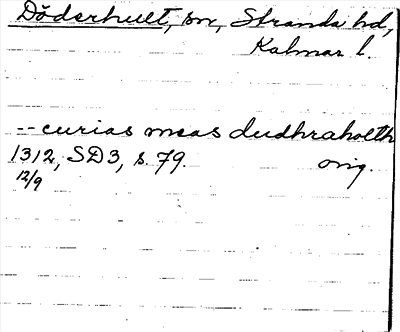 Döderhult, sn, Stranda hd,
Kalmar l.
-- curias meas dudhraholth
1312, SD3, s. 79. orig.
12/9